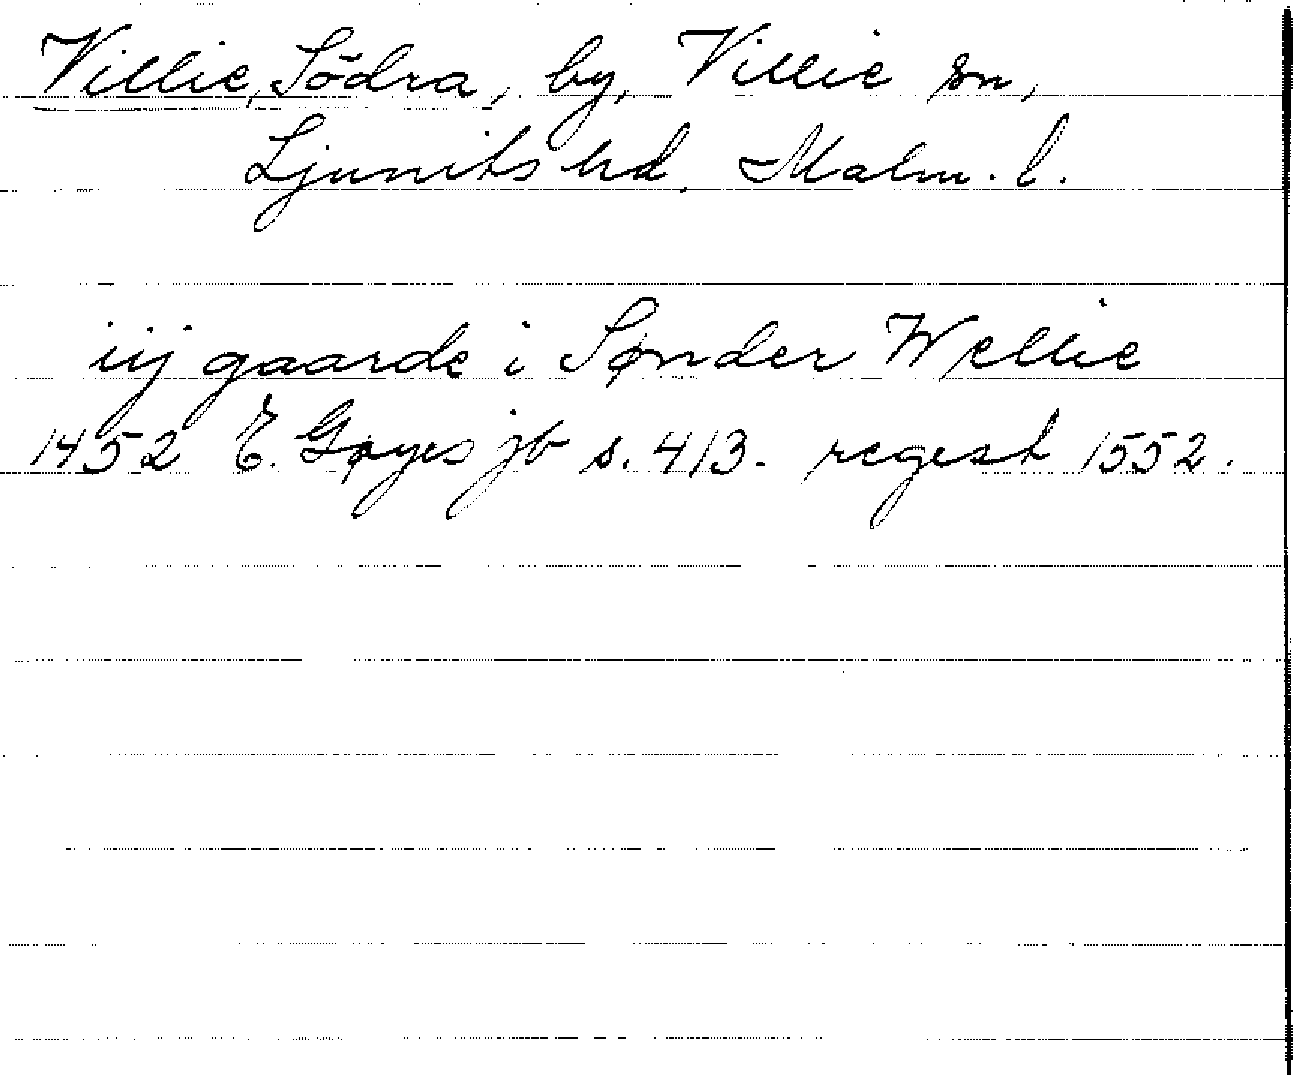 Villie, Södra, by, Villie sn,
Ljunits hd. Malm. l.
iij gaarde i Sønder Wellie
1452 E. Gøyes jb s. 413. regest 1552.